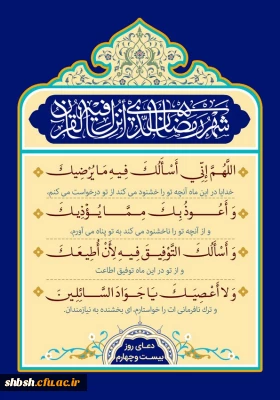 شهر رمضان الذی أنزل فیه القرآن
اللَّهُمَّ إِنِّي أَسْأَلُكَ فِيهِ مَا يُرْضِيكَ
خدایا در این ماه آنچه تو را خشنود می کند از تو درخواست می کنم،
وَ أَعُوذُ بِكَ مِمَّا يُؤْذِيكَ
و از آنچه تو را ناخشنود می کند به تو پناه می آورم،
وَ أَسْأَلُكَ التَّوْفِيقَ فِيهِ لِأَنْ أُطِيعَكَ
و از تو در این ماه توفیق اطاعت
وَ لا أَعْصِيَكَ يَا جَوَادَ السَّائِلِينَ
و ترك نافرمانی ات را خواستارم، ای بخشنده به نیازمندان.
دعای روز
بیست وچهارم
shbsh.cfu.ac.ir